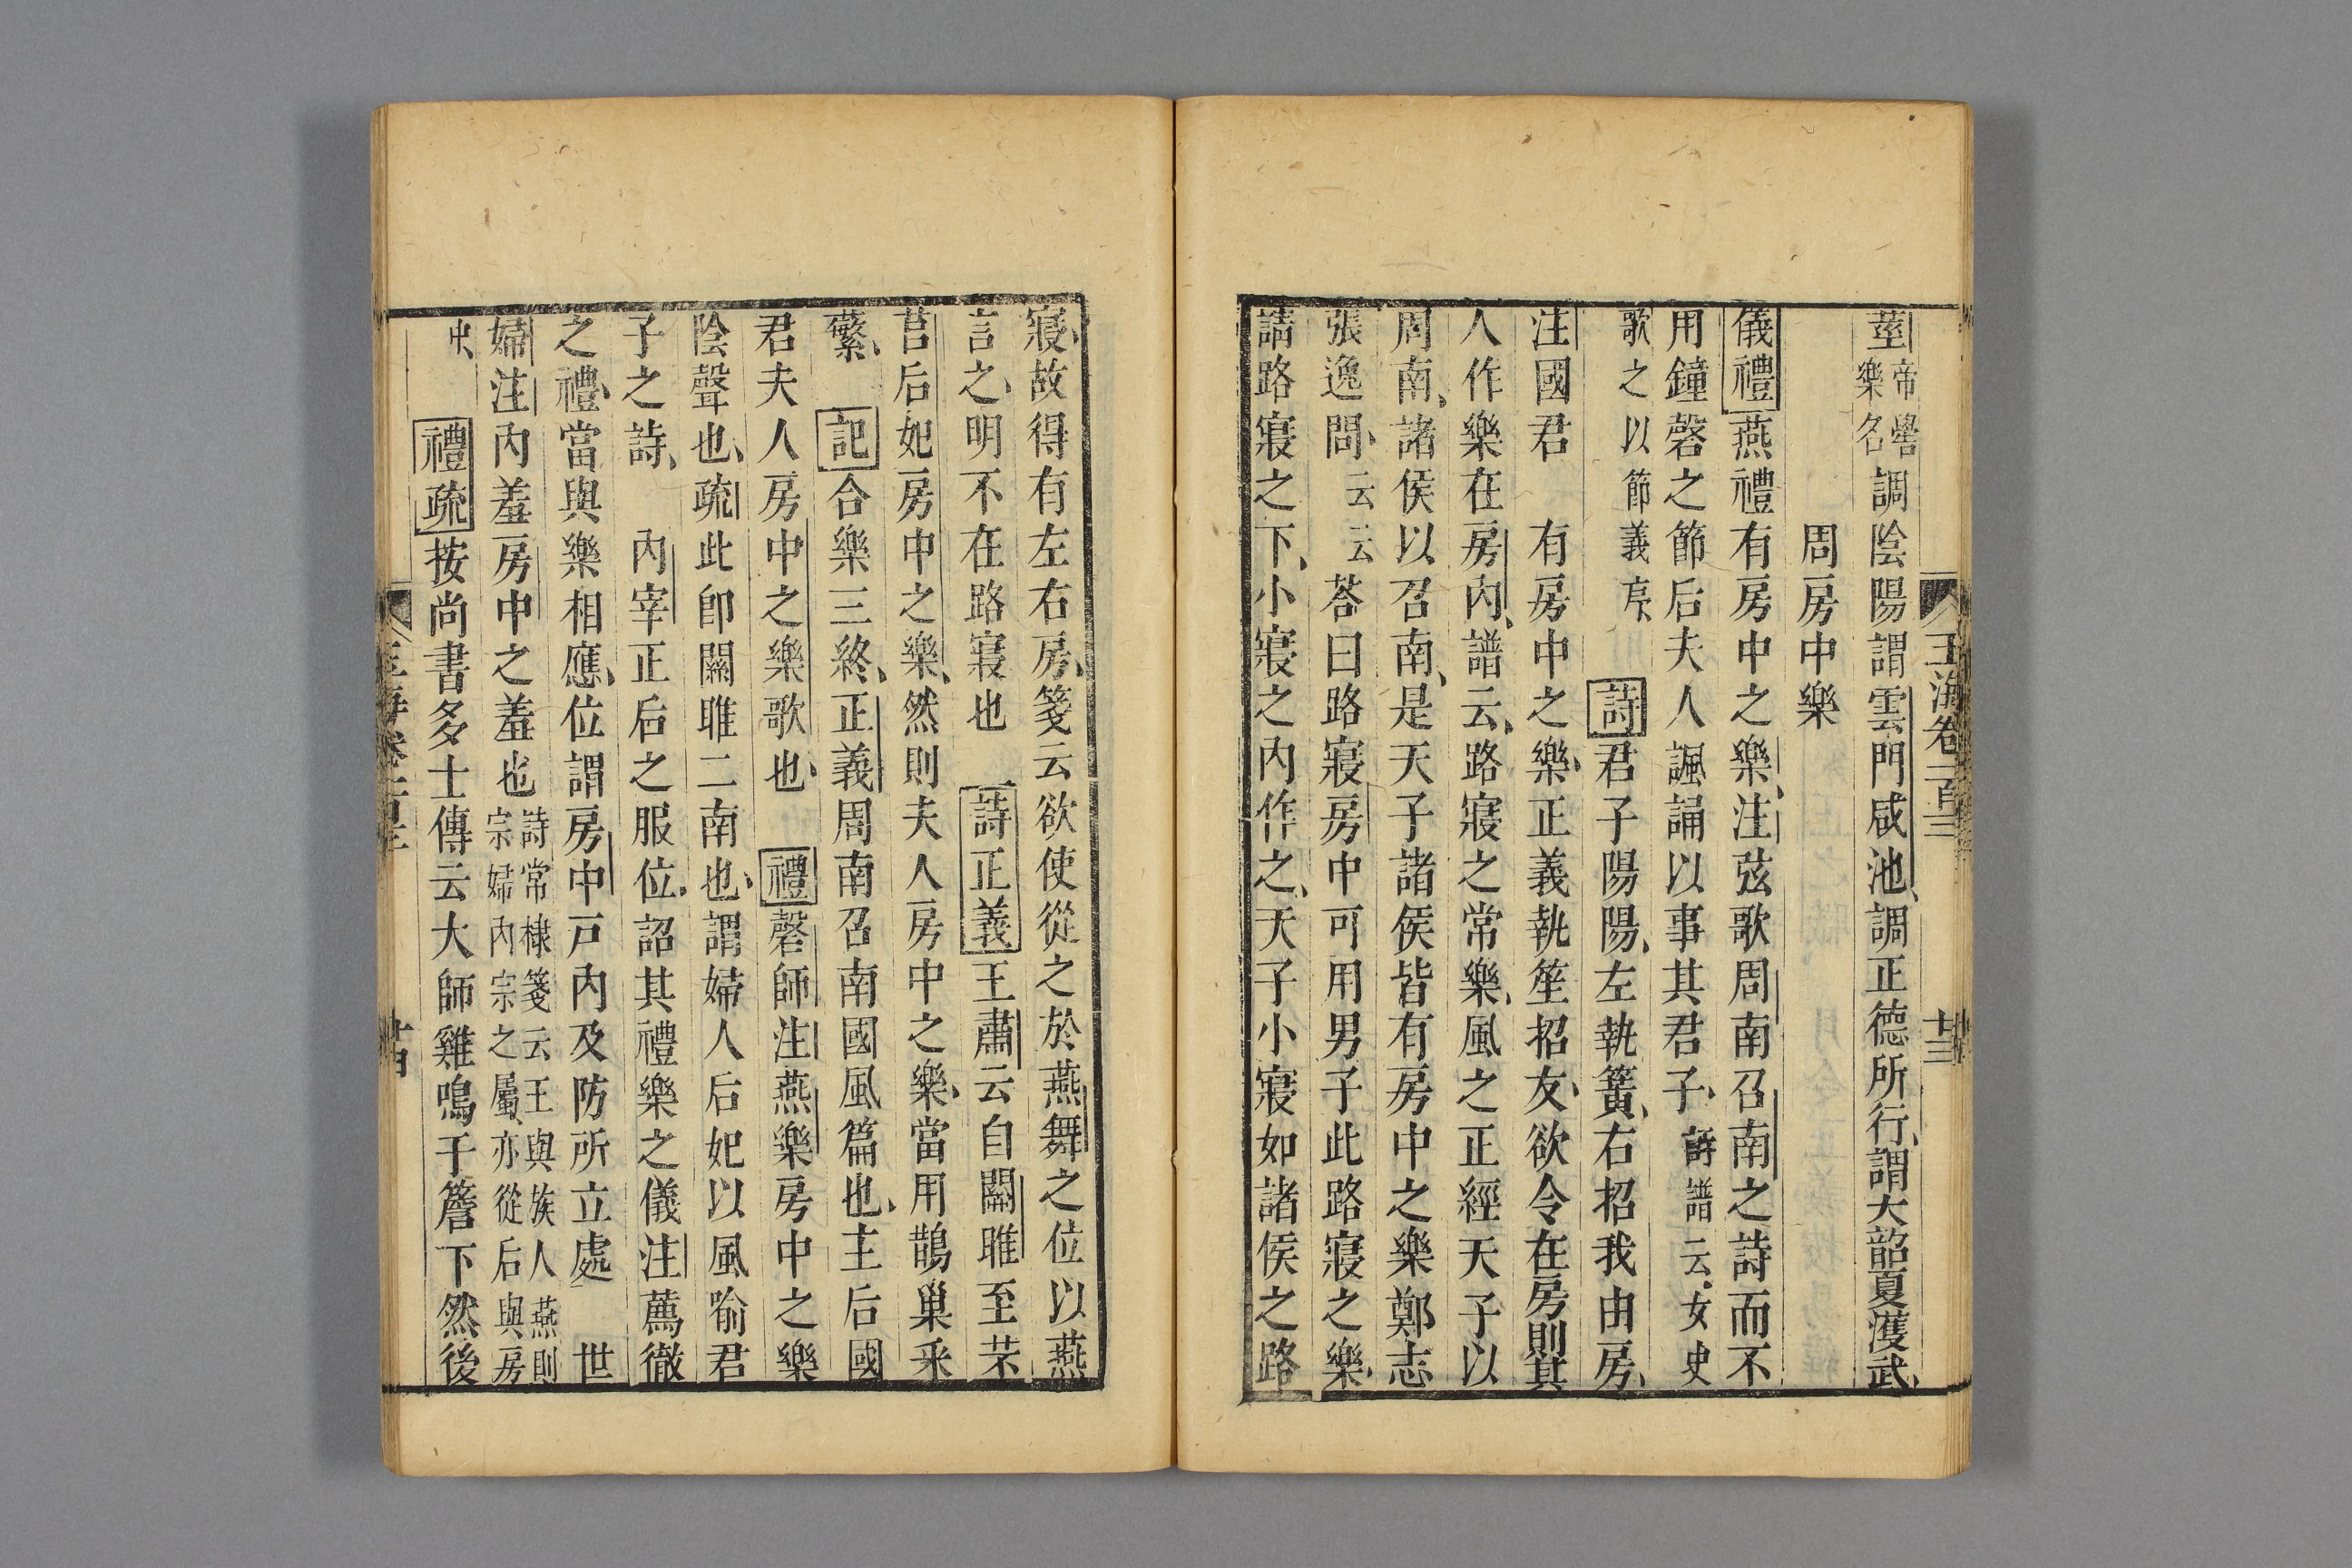 玉海卷一百三 廿三
莖帝嚳樂名調陰陽謂雲門咸池調正德所行謂大韶夏濩武
周房中樂
儀禮燕禮有房中之樂注弦歌周南召南之詩而不
用鐘磬之節后夫人諷誦以事其君子詩譜云女史
歌之以節義序 詩君子陽陽左執簧右招我由房
注國君 有房中之樂正義執笙招友欲令在房則其
人作樂在房內譜云路寢之常樂風之正經天子以
周南諸侯以召南是天子諸侯皆有房中之樂鄭志
張逸問云云荅曰路寢房中可用男子此路寢之樂
謂路寢之下小寢之內作之天子小寢如諸侯之路
寢故得有左右房箋云欲使從之於燕舞之位以燕
言之明不在路寢也 詩正義王肅云自關雎至芣
苢后妃房中之樂然則夫人房中之樂當用鵲巢采
蘩 記合樂三終正義周南召南國風篇也主后國
君夫人房中之樂歌也 禮磬師注燕樂房中之樂
陰聲也疏此卽關雎二南也謂婦人后妃以風喻君
子之詩 內宰正后之服位詔其禮樂之儀注薦徹
之禮當與樂相應位謂房中戶內及防所立處 世
婦注內羞房中之羞也詩常棣箋云王與族人燕則宗婦內宗之屬亦從后與房
中 禮疏按尚書多士傳云大師雞鳴于簷下然後